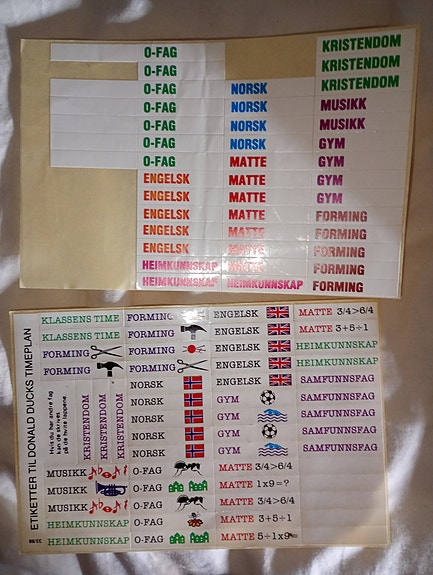 O-FAG
O-FAG
O-FAG
O-FAG
O-FAG
O-FAG
O-FAG
ENGELSK
ENGELSK
ENGELSK
ENGELSK
ENGELSK
HEIMKUNNSKAP
HEIMKUNNSKAP
NORSK
NORSK
NORSK
NORSK
MATTE
MATTE
MATTE
MATTE
MATTE
MATTE
MATTE
HEIMKUNNSKAP
KRISTENDOM
KRISTENDOM
KRISTENDOM
MUSIKK
MUSIKK
GYM
GYM
GYM
GYM
FORMING
FORMING
FORMING
FORMING
FORMING
ETIKETTER TIL DONALD DUCKS TIMEPLAN
33/88
KLASSENS TIME
KLASSENS TIME
FORMING
FORMING
Hvis du har andre fag
kan de skrives
på de hvite lappene.
KRISTENDOM
KRISTENDOM
KRISTENDOM
MUSIKK
MUSIKK
MUSIKK
HEIMKUNNSKAP
HEIMKUNNSKAP
FORMING
FORMING
FORMING
FORMING
NORSK
NORSK
NORSK
NORSK
NORSK
O-FAG
O-FAG
O-FAG
O-FAG
O-FAG
ENGELSK
ENGELSK
ENGELSK
ENGELSK
ENGELSK
GYM
GYM
GYM
GYM
MATTE 3/4>6/4
MATTE 1x9=?
MATTE 3/4>6/4
MATTE 3+5÷1
MATTE 5÷1x9
MATTE 3/4>6/4
MATTE 3+5÷1
HEIMKUNNSKAP
HEIMKUNNSKAP
SAMFUNNSFAG
SAMFUNNSFAG
SAMFUNNSFAG
SAMFUNNSFAG
SAMFUNNSFAG